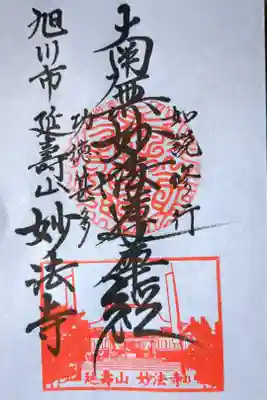 如説修行
南無妙法蓮華経
功徳甚多
旭川市 延壽山 妙法寺
延壽山 妙法寺